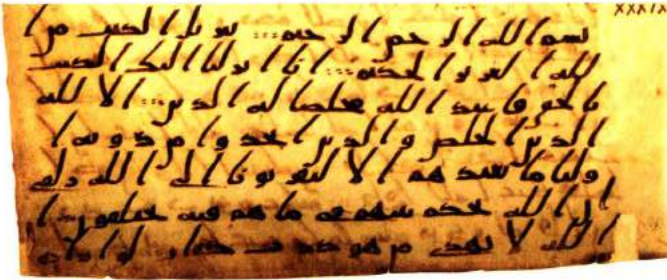 XXXIX
بسم الله الرحمن الرحيم تنزيل الكتب من
الله العزيز الحكيم انا انزلنا اليك الكتب
بالحق فاعبد الله مخلصا له الدين الا لله
الدين الخلص والذين اتخذوا من دونه ا
وليا ما نعبدهم الا ليقربونا الى الله زلفى
ان الله يحكم بينهم في ما هم فيه يختلفون ا
ن الله لا يهدي من هو كذب كفار لو اراد